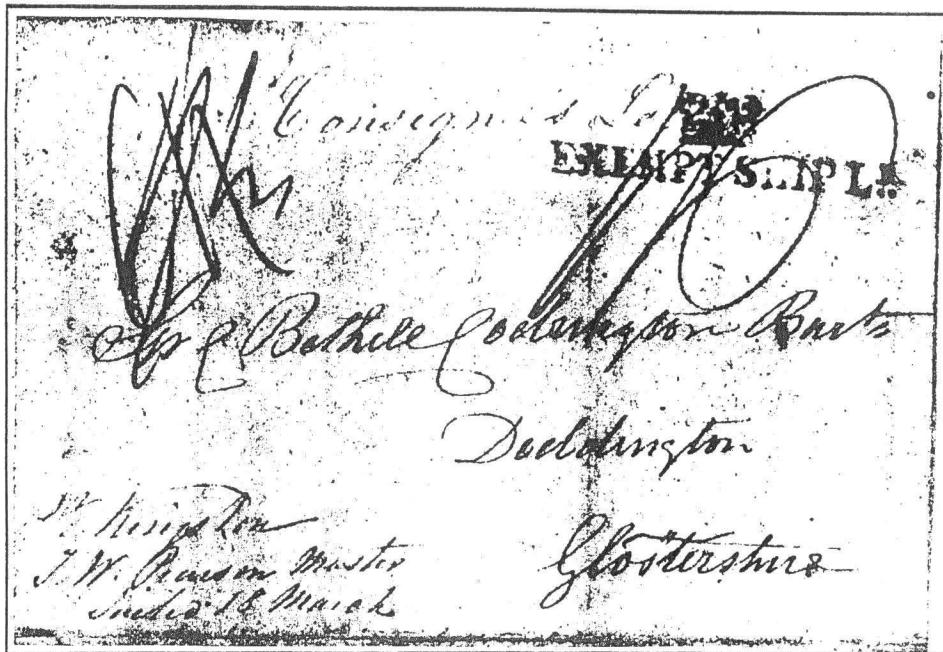 Consignees L
EXEMPT SHIP LR
Sir C Bethell Codrington Bart
Doddington
Glostershire
Pr Kingston
J. W. Pearson Master
18 March